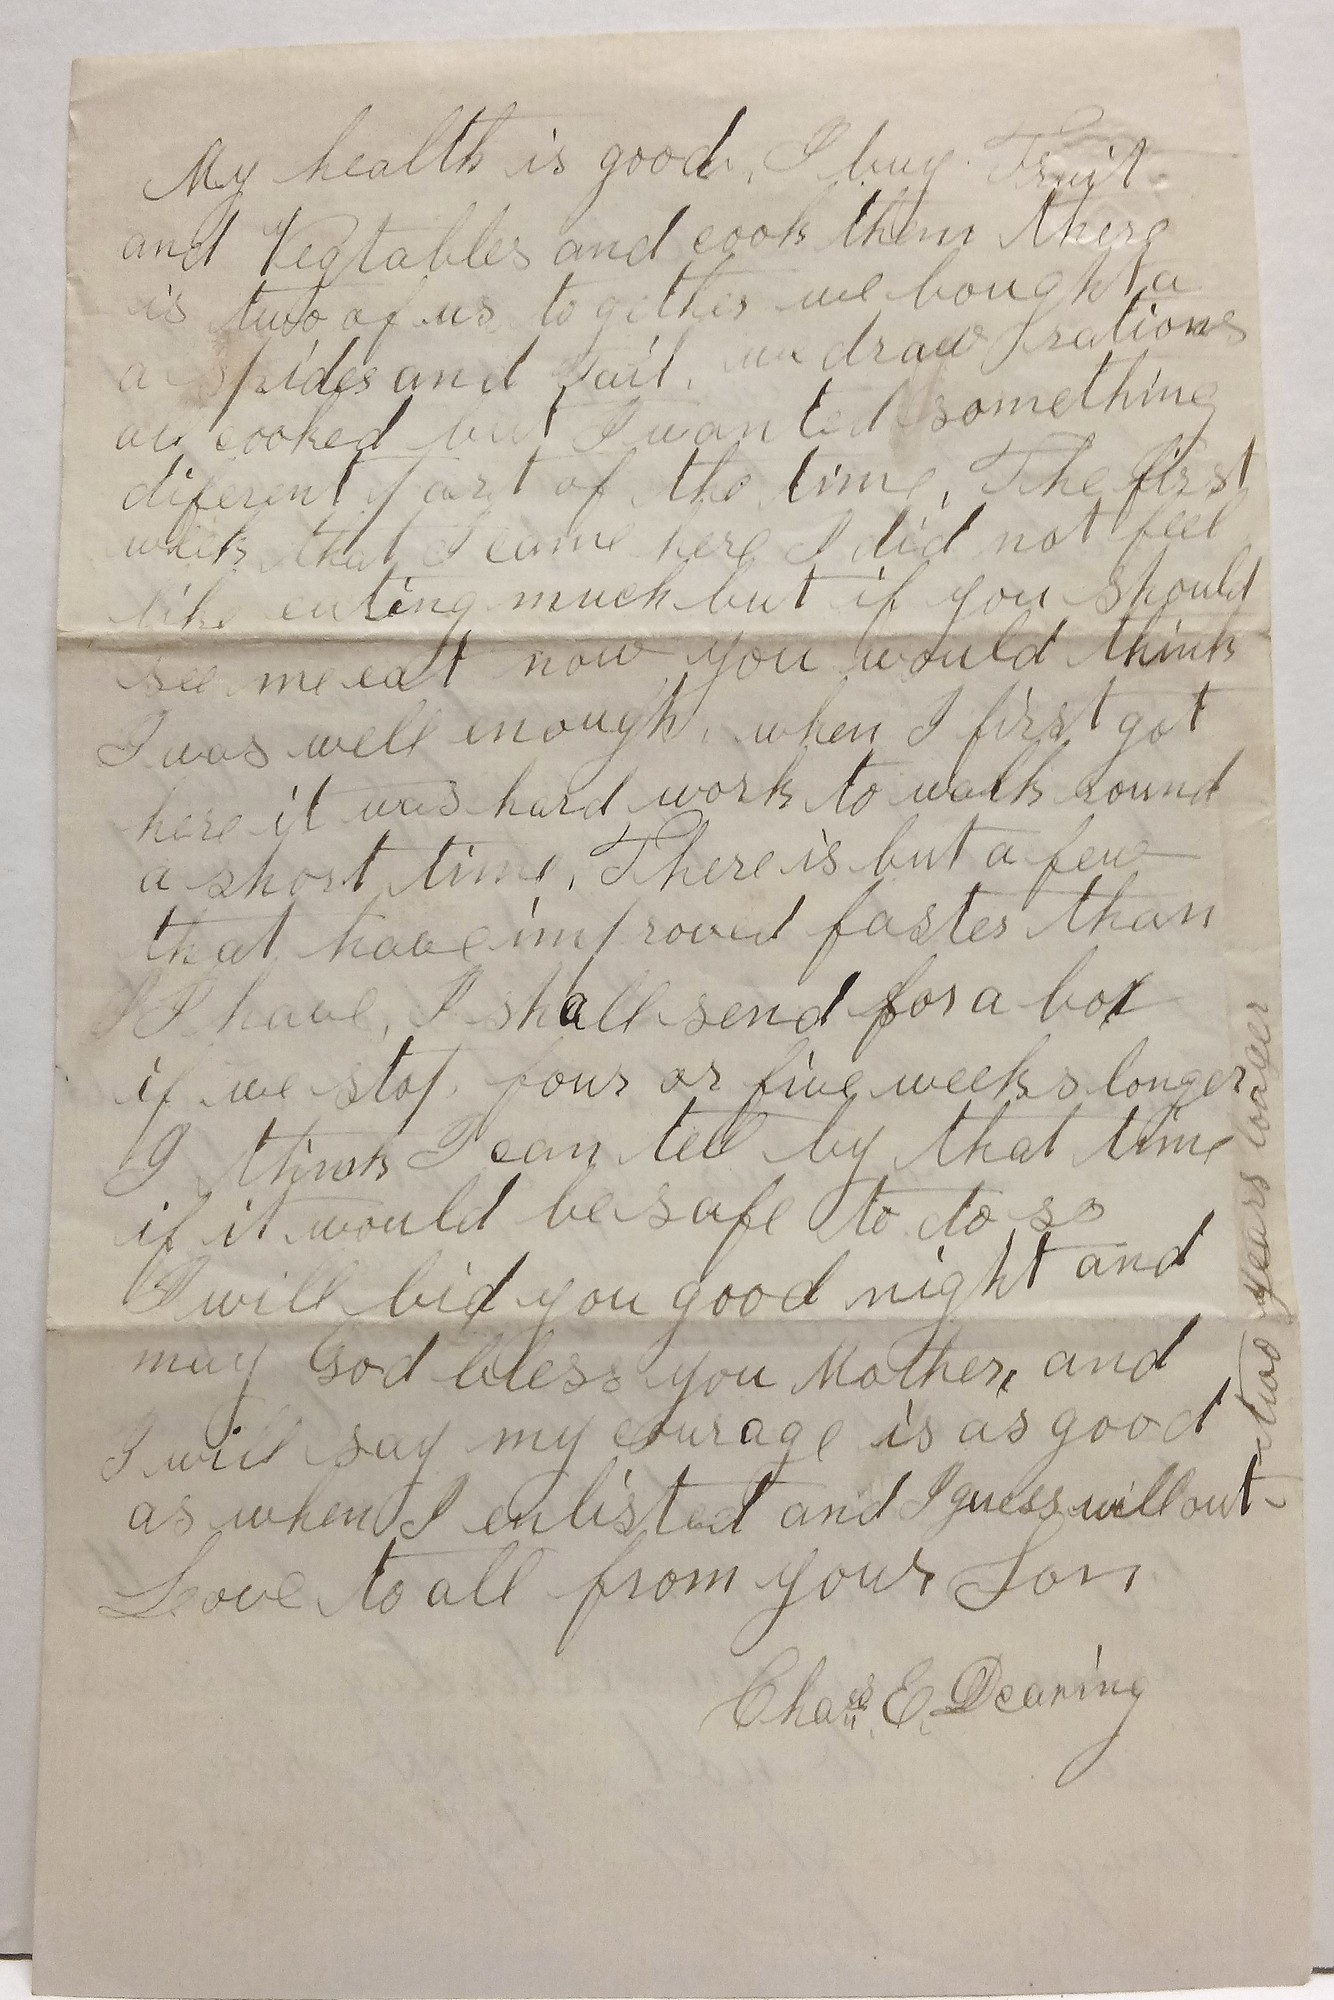 My health is good, I buy Fruit
and Vegtables and cook them there
is two of us togither we bought a
a spider and pail, we draw rations
all cooked but I wanted something
diferent part of the time, The first
week that I came here I did not feel
like eating much but if you should
see me eat now you would think
I was well enough, when I first got
here it was hard work to walk round
a short time, There is but a few
that have improved faster than
I have, I shall send for a box
if we stop four or five weeks longer
I think I can tell by that time
if it would be safe to do so
I will bid you good night and
may God bless you Mother, and
I will say my courage is as good
as when I enlisted and I guess will out-
Love to all from your Son
Chas E. Dearing
two years longer